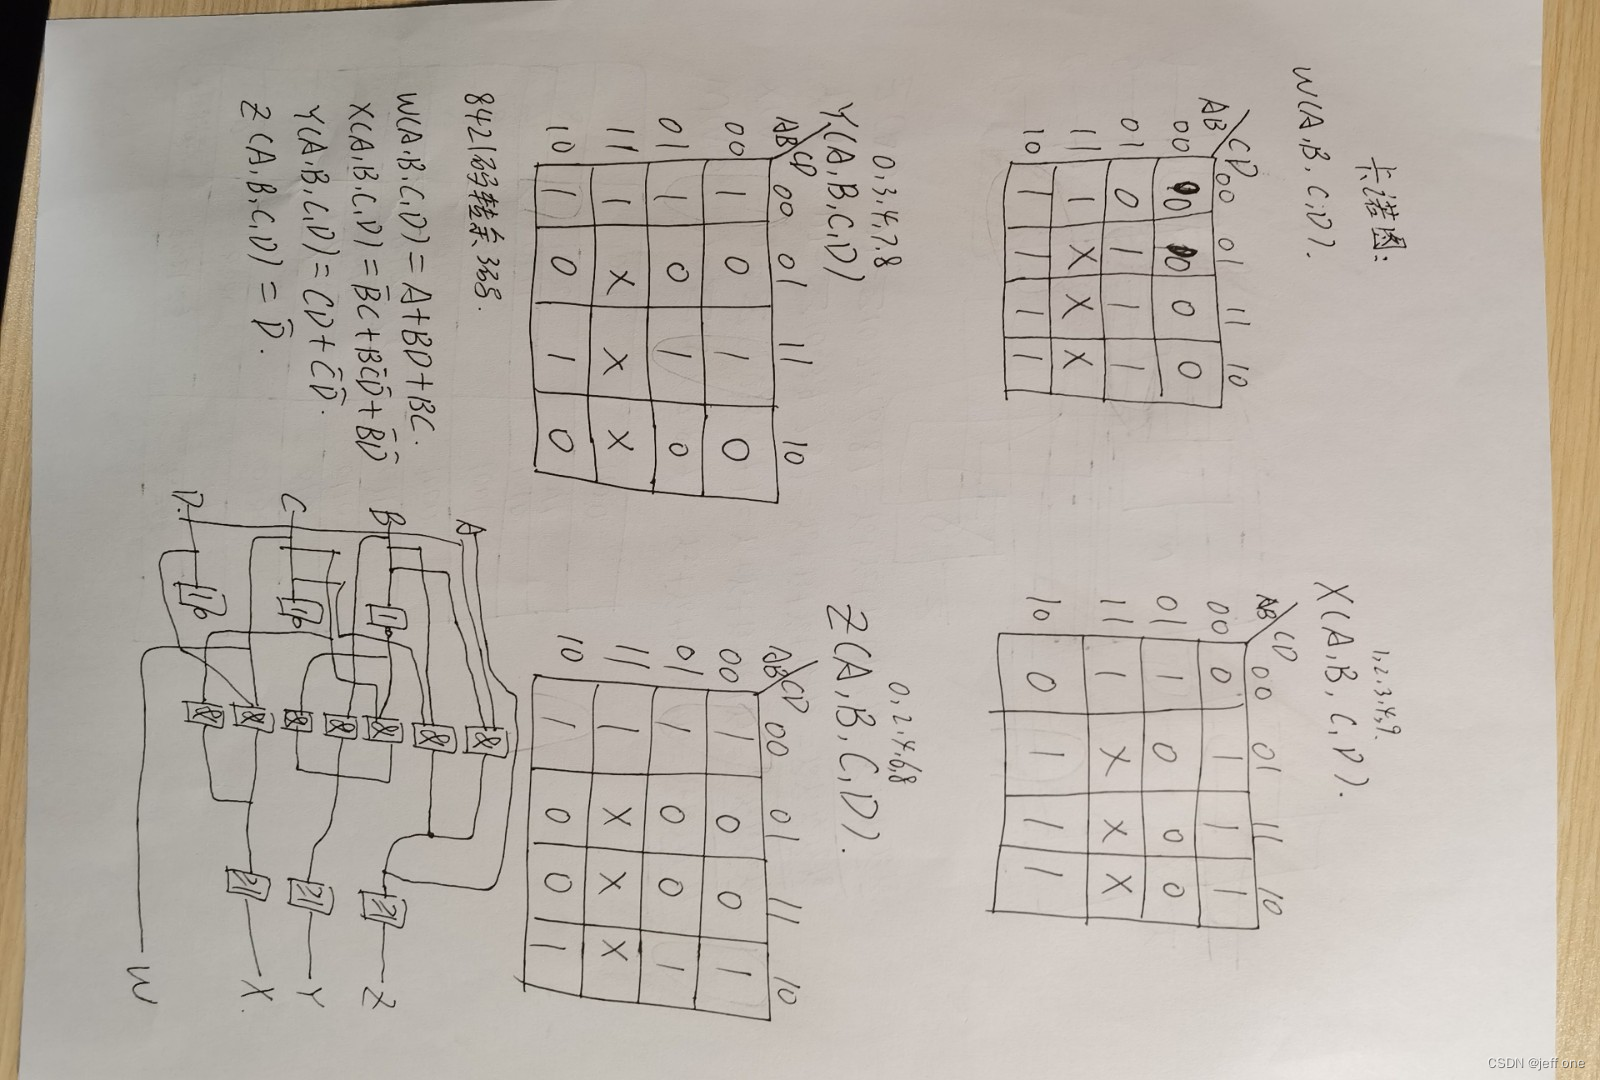 卡诺图:
W(A,B,C,D).
AB\CD 00 01 11 10
00 0 0 0 0
01 0 1 1 1
11 1 X X X
10 1 1 1 1
1,2,3,4,9.
X(A,B,C,D).
AB\CD 00 01 11 10
00 0 1 1 1
01 1 0 0 0
11 1 X X X
10 0 1 1 1
0,3,4,7,8
Y(A,B,C,D)
AB\CD 00 01 11 10
00 1 0 1 0
01 1 0 1 0
11 1 X X X
10 1 0 1 0
0,2,4,6,8
Z(A,B,C,D).
AB\CD 00 01 11 10
00 1 0 0 1
01 1 0 0 1
11 1 X X X
10 1 0 0 1
8421码转余3码.
W(A,B,C,D) = A+BD+BC.
X(A,B,C,D) = B̄C+BC̄D̄+B̄D̄
Y(A,B,C,D) = CD+C̄D̄.
Z(A,B,C,D) = D̄.
A
B 1
C 1
D. 1
& & & & & & &
≥1 ≥1 ≥1
Z
Y
X.
W
CSDN @jeff one